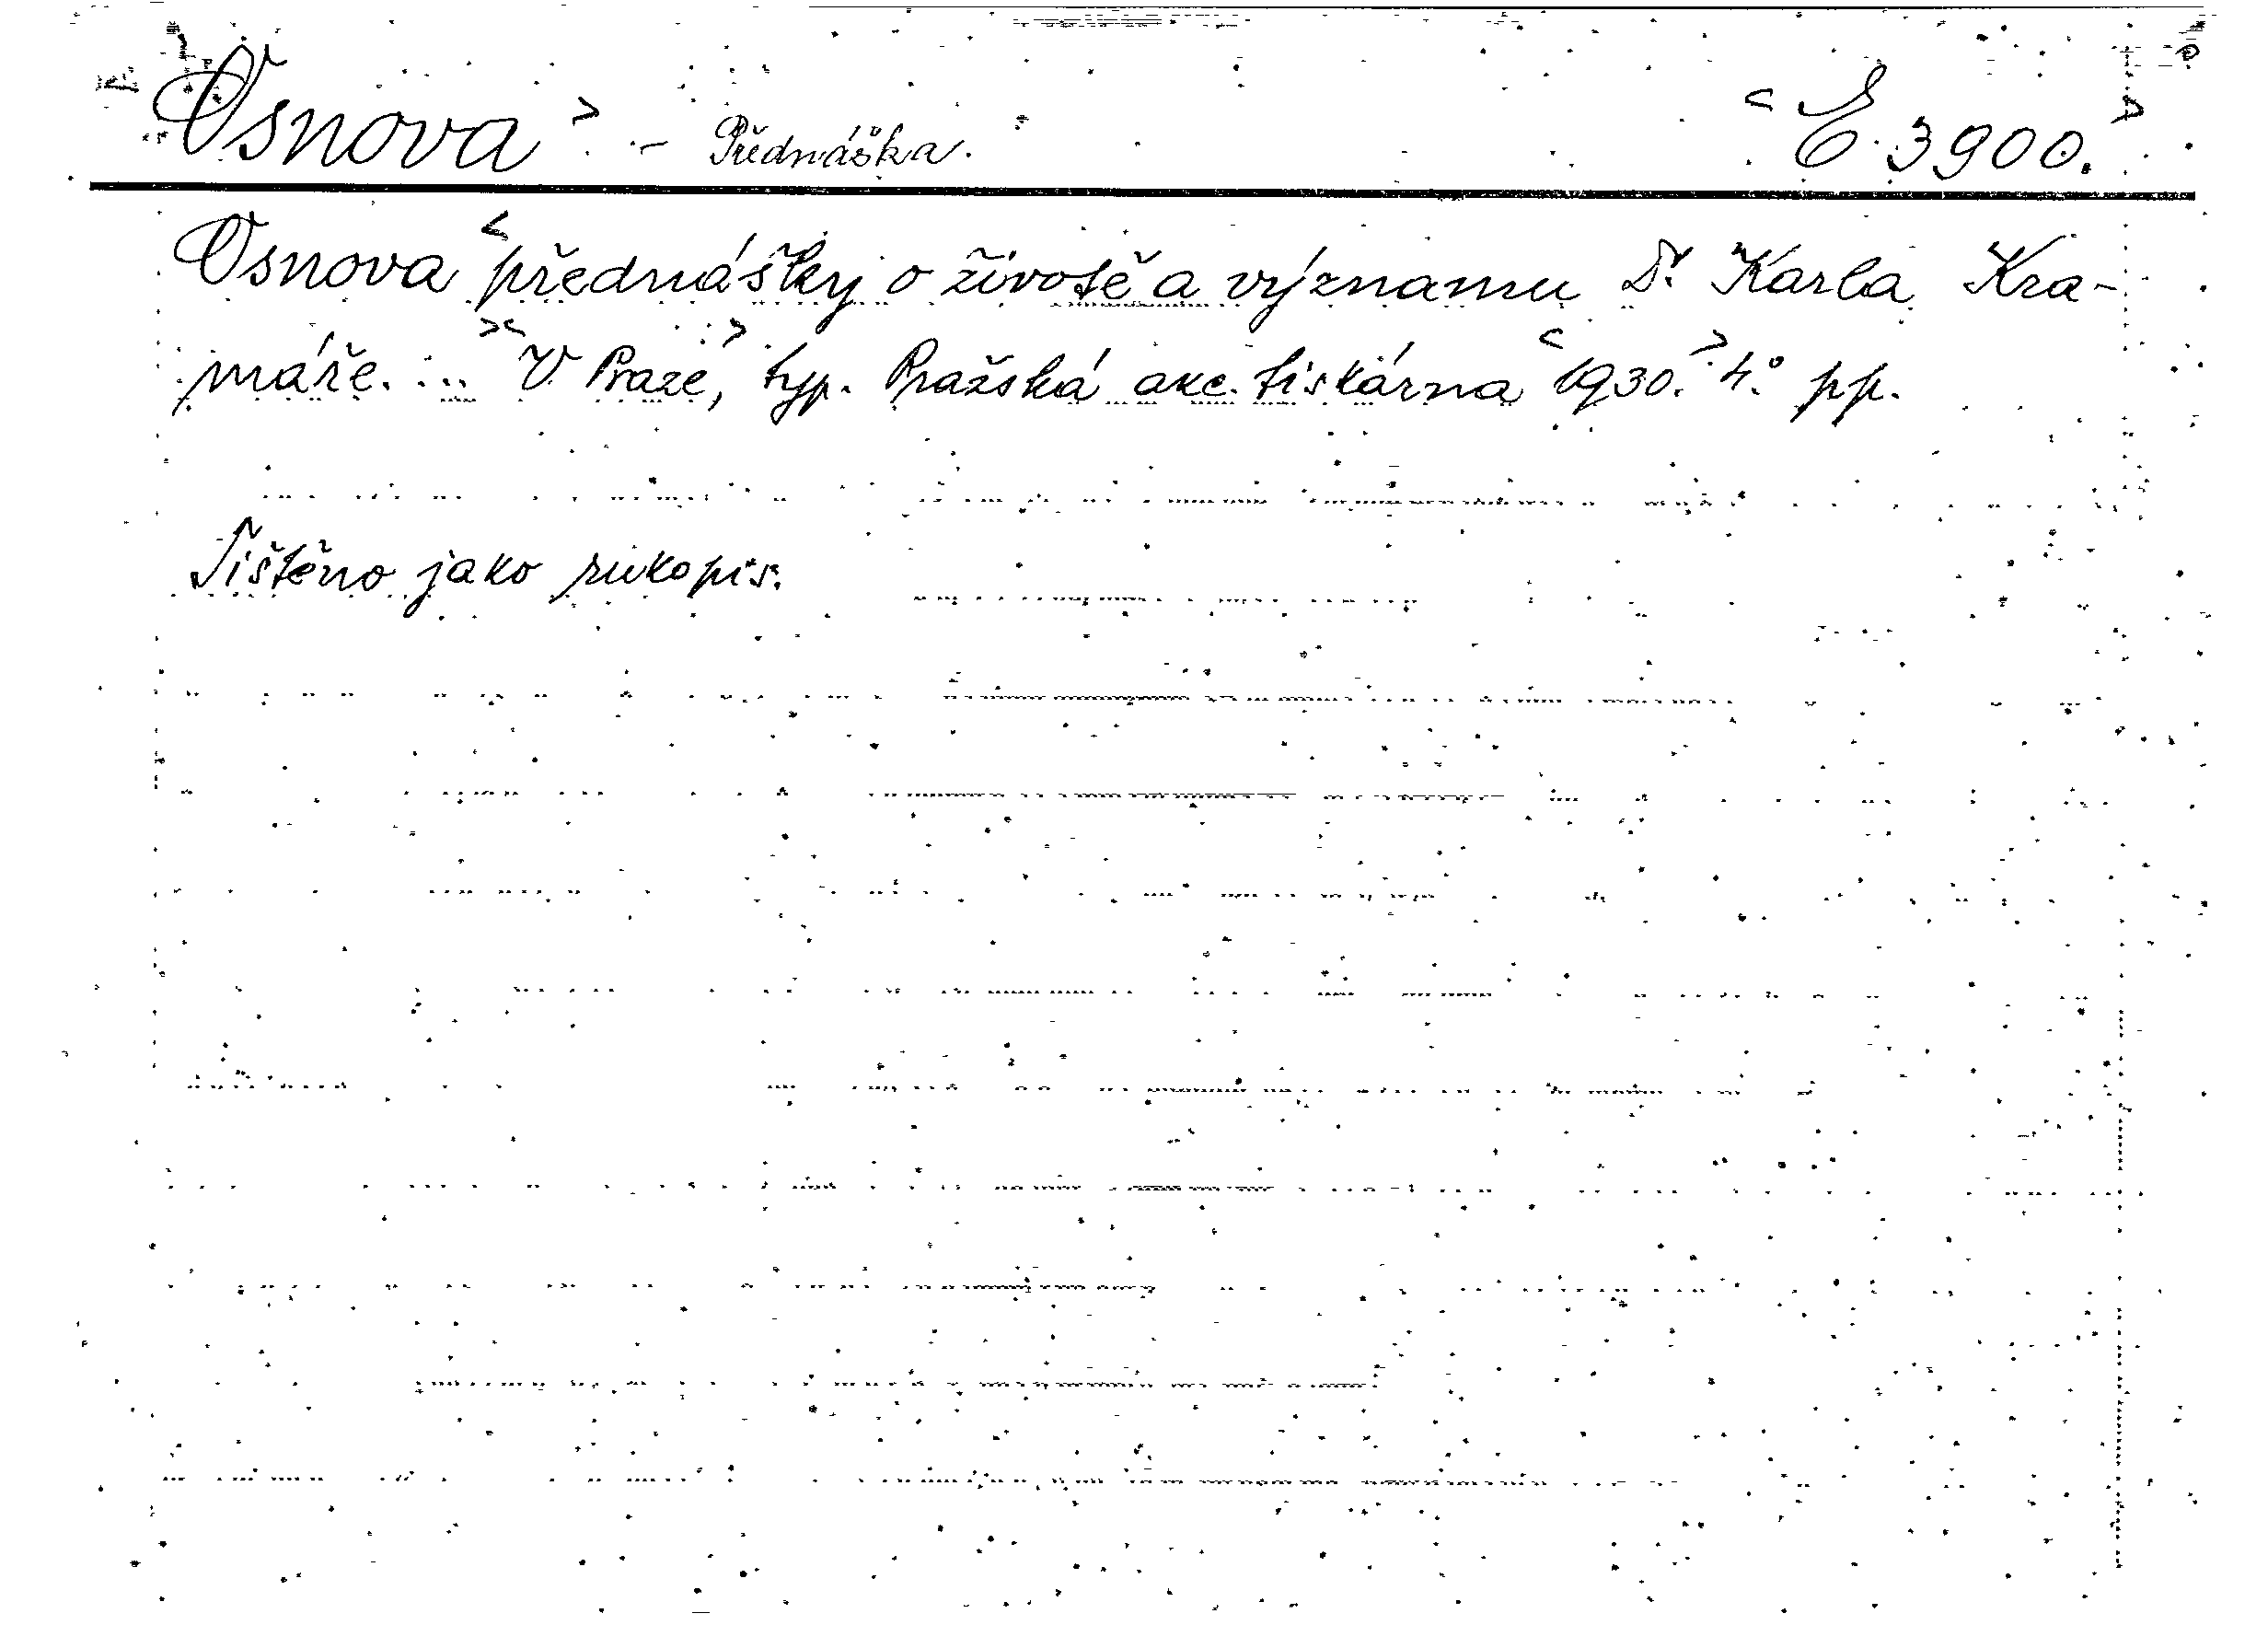 Osnova > - Přednáška. < E 3900. >
Osnova < přednášky o životě a významu Dr. Karla Kra-
máře. ... >< V Praze, > typ. Pražská akc. tiskárna < 1930. > 4.° pp.
Tištěno jako rukopis.